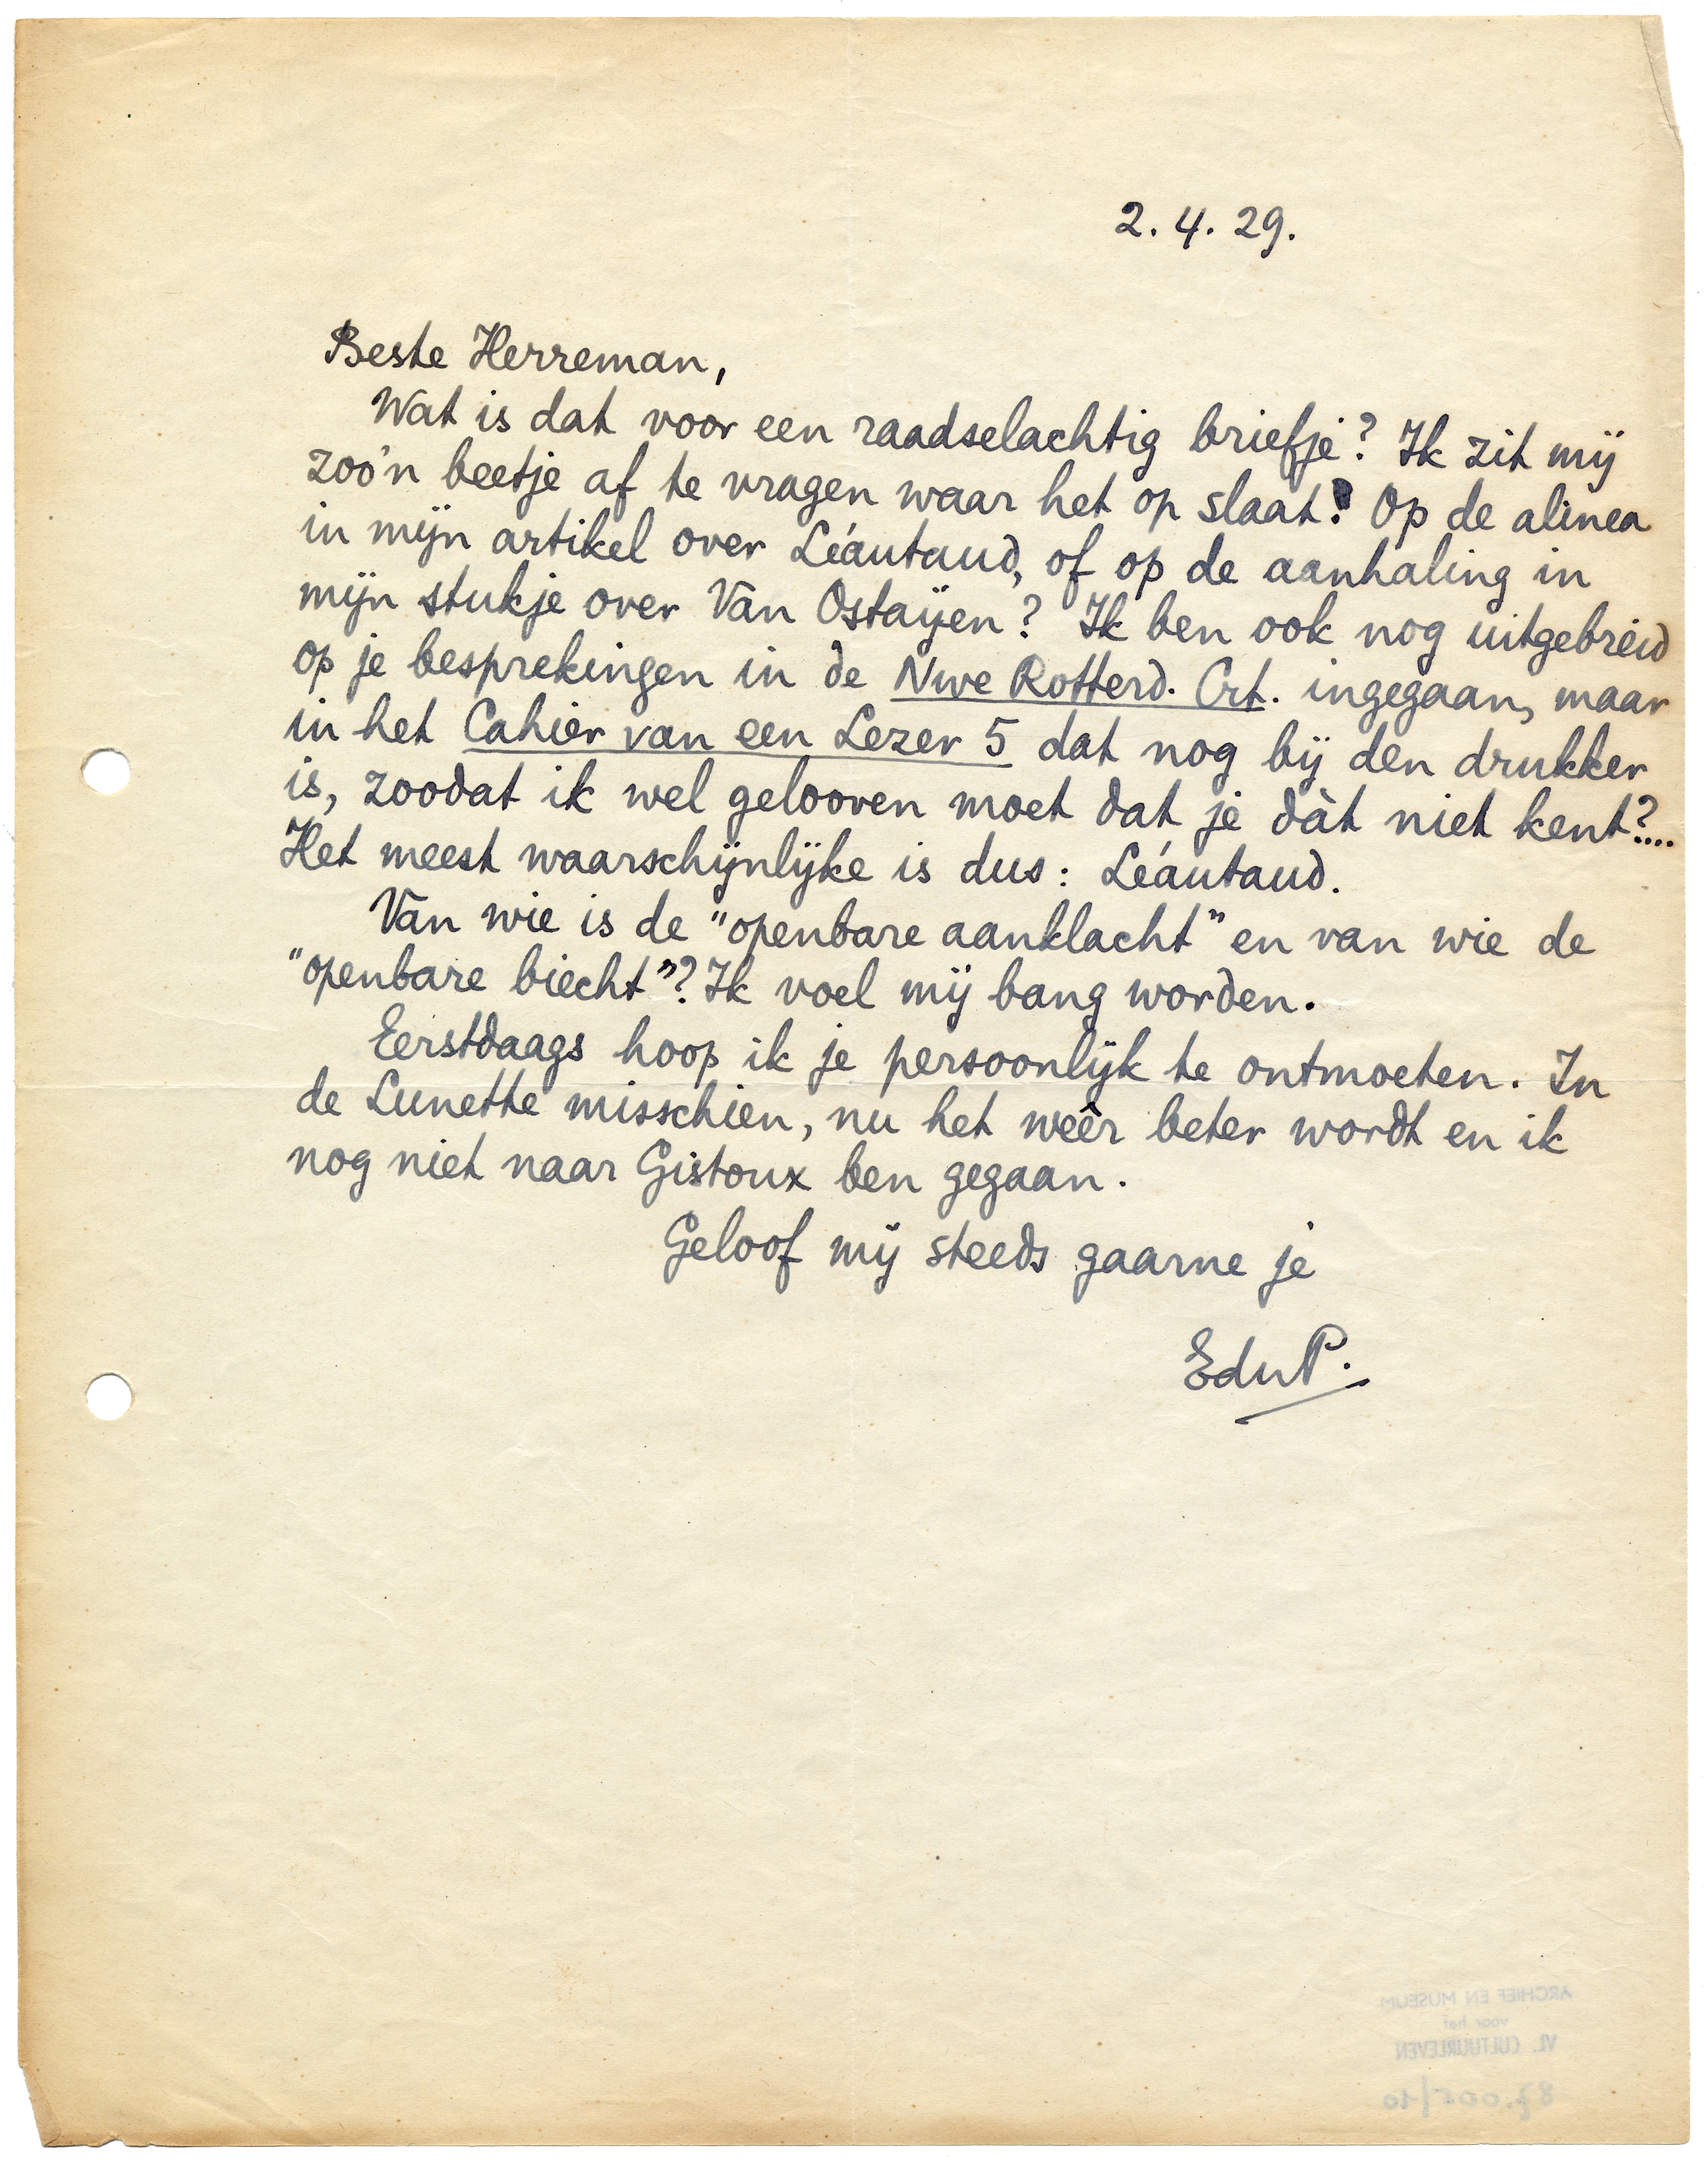 2. 4. 29.
Beste Herreman,
Wat is dat voor een raadselachtig briefje? Ik zit mij
zoo'n beetje af te vragen waar het op slaat? Op de alinea
in mijn artikel over Léautaud, of op de aanhaling in
mijn stukje over Van Ostaijen? Ik ben ook nog uitgebreid
op je besprekingen in de Nwe Rotterd. Crt. ingegaan, maar
in het Cahier van een Lezer 5 dat nog bij den drukker
is, zoodat ik wel gelooven moet dat je dàt niet kent?....
Het meest waarschijnlijke is dus: Léautaud.
Van wie is de "openbare aanklacht" en van wie de
"openbare biecht"? Ik voel mij bang worden.
Eerstdaags hoop ik je persoonlijk te ontmoeten. In
de Lunette misschien, nu het weêr beter wordt en ik
nog niet naar Gistoux ben gegaan.
Geloof mij steeds gaarne je
EduP.
ARCHIEF EN MUSEUM
voor het
VL. CULTUURLEVEN
87.005/10